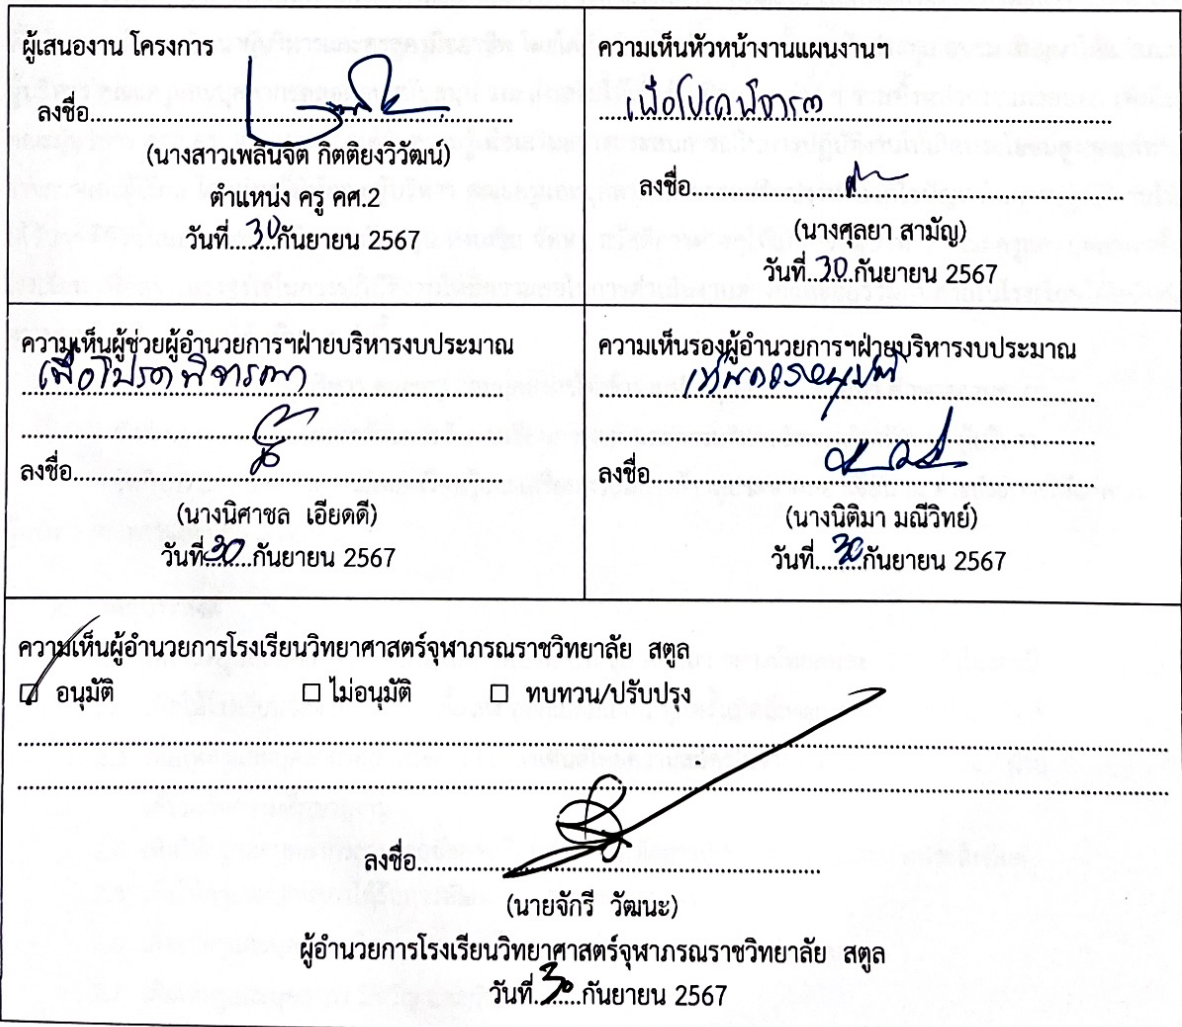 ผู้เสนองาน โครงการ
ลงชื่อ
(นางสาวเพลินจิต กิตติยงวิวัฒน์)
ตำแหน่ง ครู คศ.2
วันที่ 30 กันยายน 2567
ความเห็นหัวหน้างานแผนงานฯ
เพื่อโปรดพิจารณา
ลงชื่อ
(นางศุลยา สามัญ)
วันที่ 30 กันยายน 2567
ความเห็นผู้ช่วยผู้อำนวยการฯฝ่ายบริหารงบประมาณ
เพื่อโปรดพิจารณา
ลงชื่อ
(นางนิศาชล เอียดดี)
วันที่ 30 กันยายน 2567
ความเห็นรองผู้อำนวยการฯฝ่ายบริหารงบประมาณ
เห็นควรอนุมัติ
ลงชื่อ
(นางนิติมา มณีวิทย์)
วันที่ 30 กันยายน 2567
ความเห็นผู้อำนวยการโรงเรียนวิทยาศาสตร์จุฬาภรณราชวิทยาลัย สตูล
☑ อนุมัติ ☐ ไม่อนุมัติ ☐ ทบทวน/ปรับปรุง
ลงชื่อ
(นายจักรี วัฒนะ)
ผู้อำนวยการโรงเรียนวิทยาศาสตร์จุฬาภรณราชวิทยาลัย สตูล
วันที่ 30 กันยายน 2567